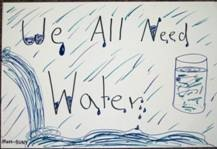 We All Need
Water.